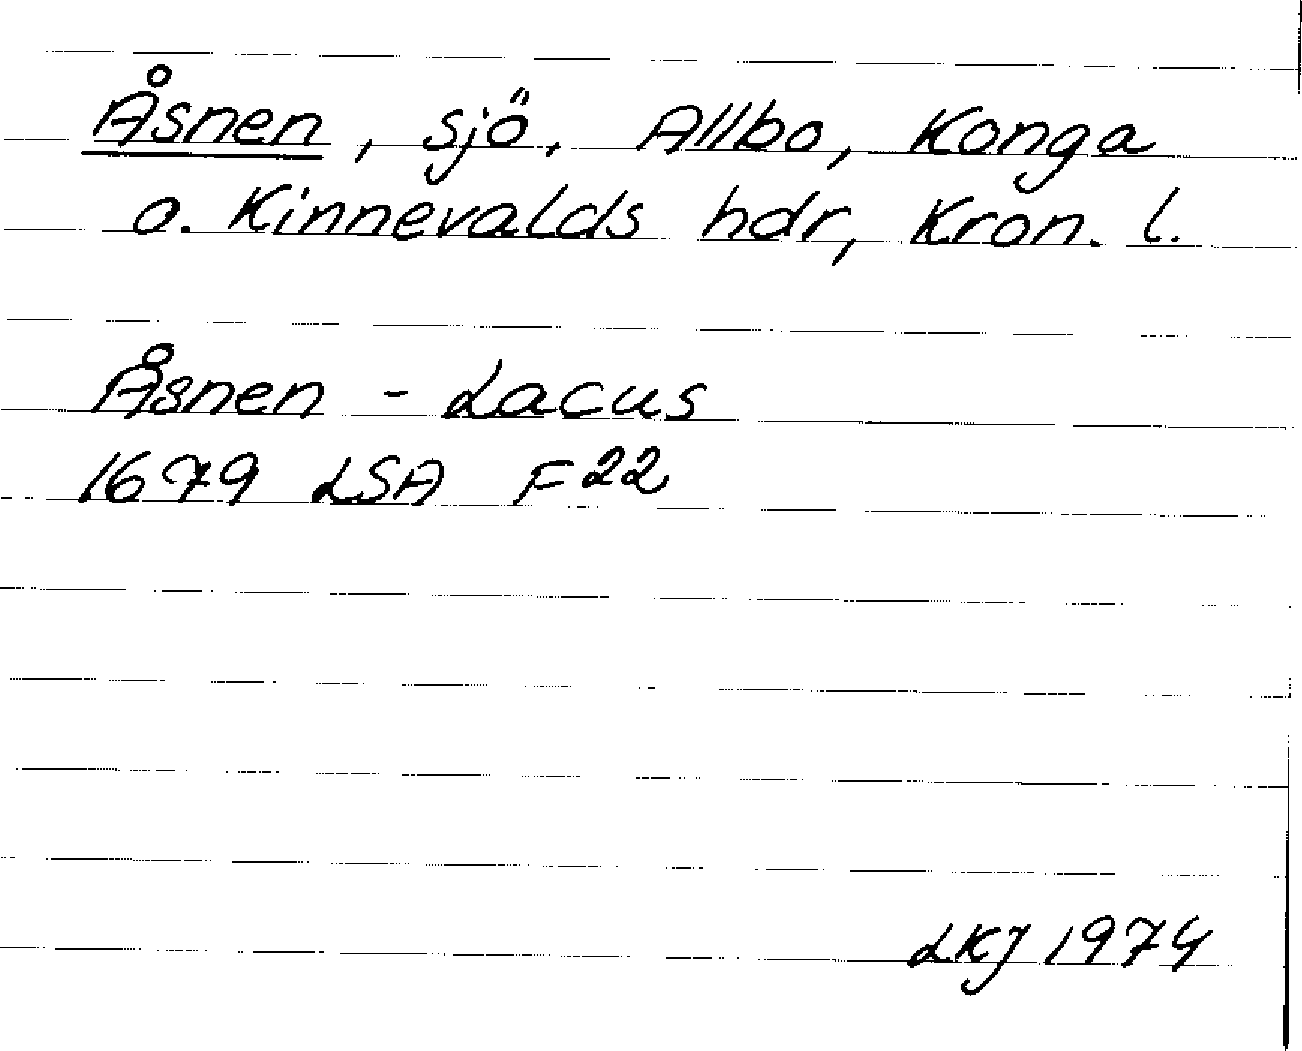 Åsnen, sjö, Allbo, Konga
o. Kinnevalds hdr, Kron. l.
Åsnen - Lacus
1679 LSA F22
LKJ 1974